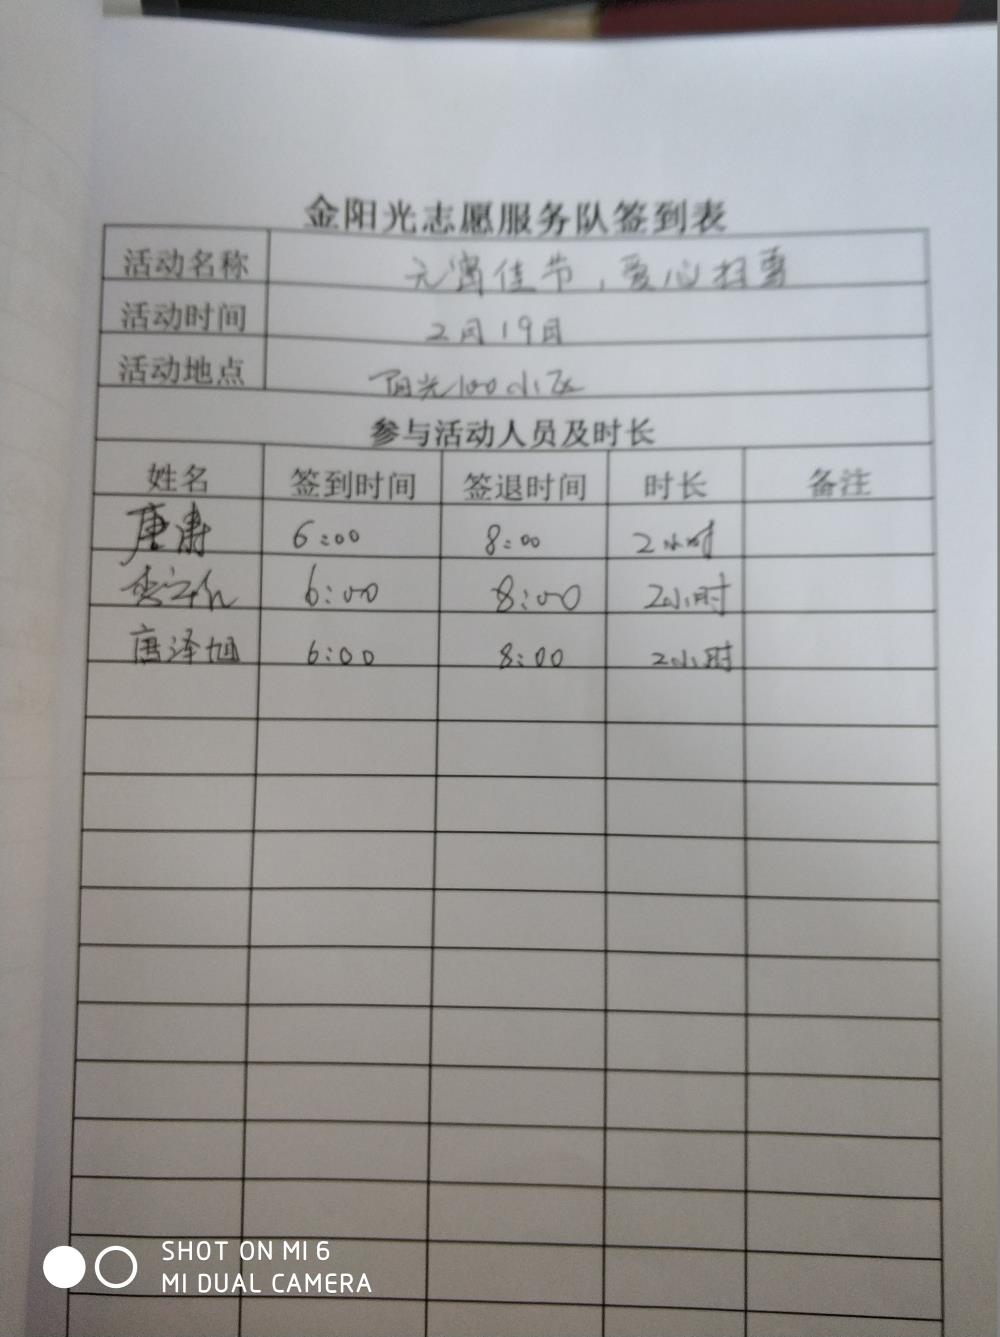 金阳光志愿服务队签到表
活动名称 元宵佳节，爱心扫雪
活动时间 2月19日
活动地点 阳光100小区
参与活动人员及时长
姓名 签到时间 签退时间 时长 备注
唐肃 6:00 8:00 2小时
6:00 8:00 2小时
唐泽旭 6:00 8:00 2小时
SHOT ON MI 6
MI DUAL CAMERA